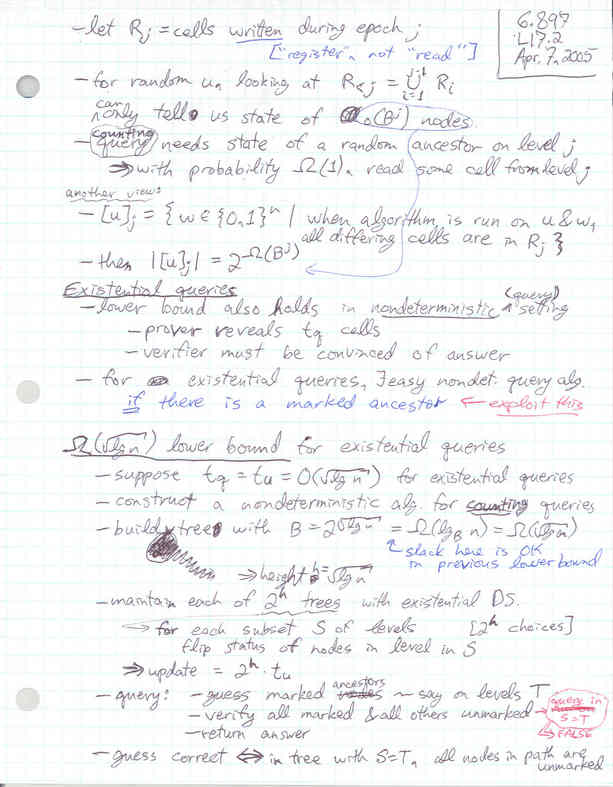 6.897
L17.2
Apr. 7, 2005
- let Rj = cells written during epoch j
["register", not "read"]
- for random u, looking at R<j = ∪ i=1 j-1 Ri
can only tell us state of o(B^j) nodes
- counting query needs state of a random ancestor on level j
⇒ with probability Ω(1), read some cell from level j
another view:
- [u]j = {w ∈ {0,1}^n | when algorithm is run on u & w,
all differing cells are in Rj}
- then |[u]j| = 2^Ω(B^j)
Existential queries
- lower bound also holds in nondeterministic (query) setting
- prover reveals tq cells
- verifier must be convinced of answer
- for existential queries, ∃ easy nondet. query alg.
if there is a marked ancestor ← exploit this
Ω(√lg n) lower bound for existential queries
- suppose tq = tu = O(√lg n) for existential queries
- construct a nondeterministic alg. for counting queries
- build tree with B = 2^√lg n = Ω(lgB n) = Ω(√lg n)
slack here is OK
in previous lower bound
⇒ height h = √lg n
- maintain each of 2^h trees with existential DS.
↪ for each subset S of levels [2^h choices]
flip status of nodes in level in S
⇒ update = 2^h · tu
- query: - guess marked ancestors ~ say on levels T
- verify all marked & all others unmarked → query in S=T ↪ FALSE
- return answer
- guess correct ⇔ in tree with S=T, all nodes in path are unmarked